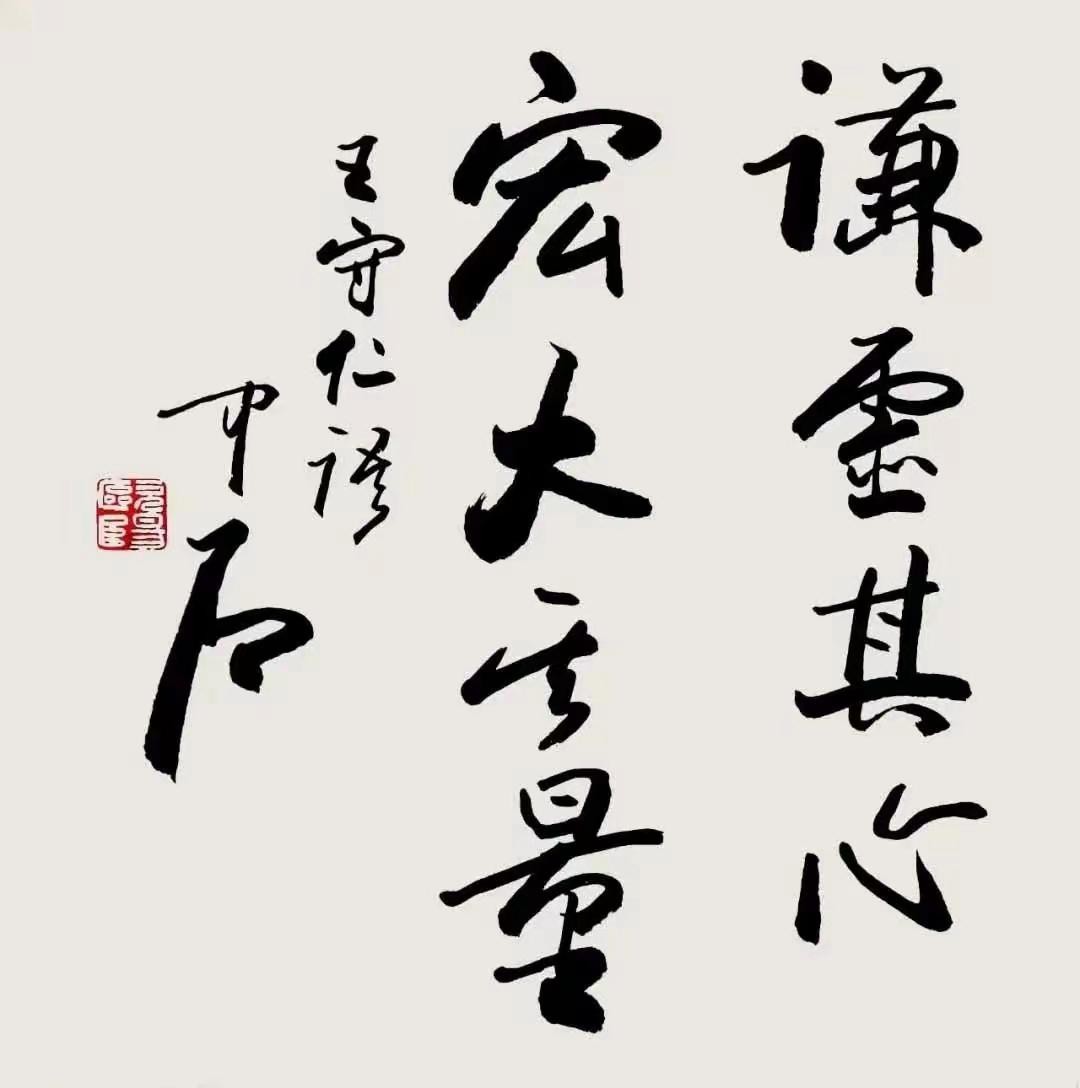 谦虚其心
宏大其量
王守仁语
中石